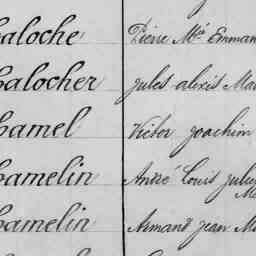 Caloche Pierre Mie Emman
Calocher Jules Alexis Mar
Camel Victor Joachim
Camelin André Louis Jules
Camelin Armand Jean M